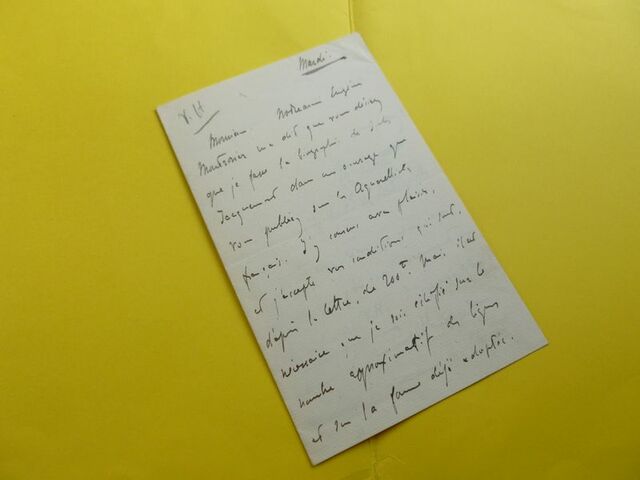 Mardi.
Monsieur
m'a dit que vous désirez
que je fasse la biographie de Jules
Jacquemart dans un ouvrage que
vous publiez sur les Aquarellistes
français. J'y consens avec plaisir,
et j'accepte vos conditions qui sont,
d'après la lettre, de 200 f. Mais il est
nécessaire que je sois édifié sur le
nombre approximatif de lignes
et sur la forme déjà adoptée.